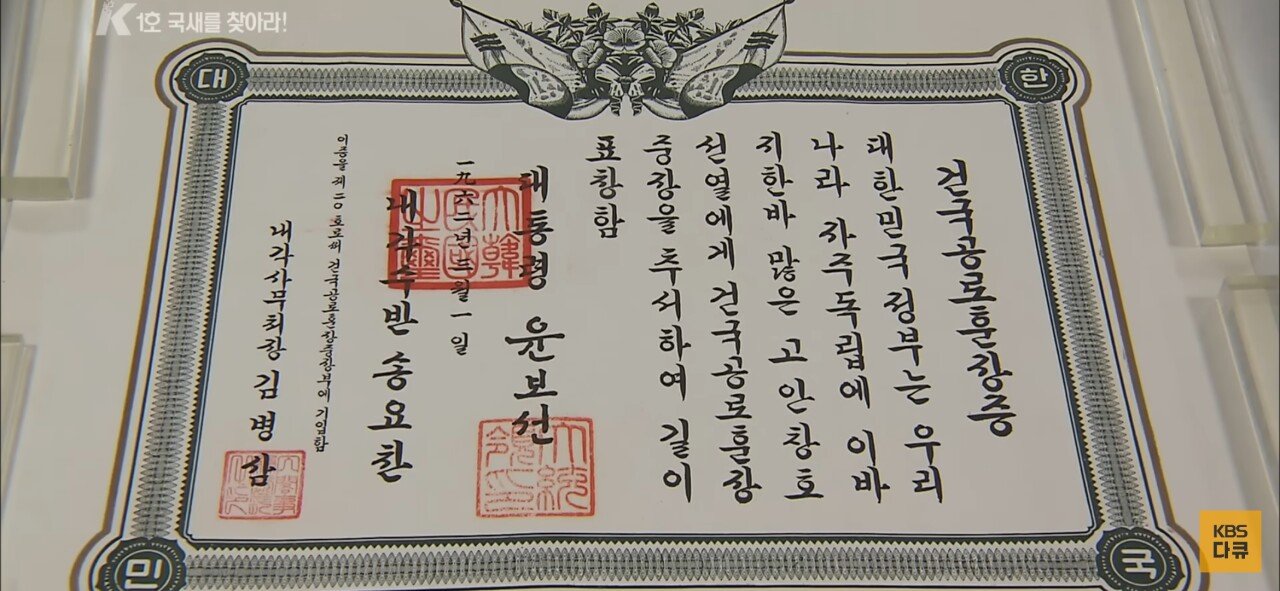 1호 국새를 찾아라!
대
한
민
국
건국공로훈장증
대한민국정부는 우리
나라 자주독립에 이바
지한바 많은 고 안창호
선열에게 건국공로훈장
중장을 추서하여 길이
표창함
대통령 윤보선
一九六二년 三월 一일
내각수반 송요찬
이증을 제 二〇 호로써 건국공로훈장증장부에 기입함
내각사무처장 김병삼
大韓
民國
之璽
大統
領印
KBS
다큐